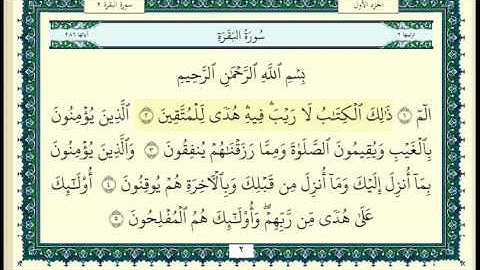 سورة البقرة ٢
الجزء الأول
آياتها ٢٨٦
سُورَةُ البَقَرَةِ
ترتيبها ٢
بِسْمِ اللَّهِ الرَّحْمَٰنِ الرَّحِيمِ
الٓمٓ ۝١ ذَٰلِكَ الْكِتَابُ لَا رَيْبَ ۛ فِيهِ ۛ هُدًى لِّلْمُتَّقِينَ ۝٢ الَّذِينَ يُؤْمِنُونَ
بِالْغَيْبِ وَيُقِيمُونَ الصَّلَوٰةَ وَمِمَّا رَزَقْنَٰهُمْ يُنفِقُونَ ۝٣ وَالَّذِينَ يُؤْمِنُونَ
بِمَا أُنزِلَ إِلَيْكَ وَمَا أُنزِلَ مِن قَبْلِكَ وَبِالْآخِرَةِ هُمْ يُوقِنُونَ ۝٤ أُو۟لَٰٓئِكَ
عَلَىٰ هُدًى مِّن رَّبِّهِمْ ۖ وَأُو۟لَٰٓئِكَ هُمُ الْمُفْلِحُونَ ۝٥
٢